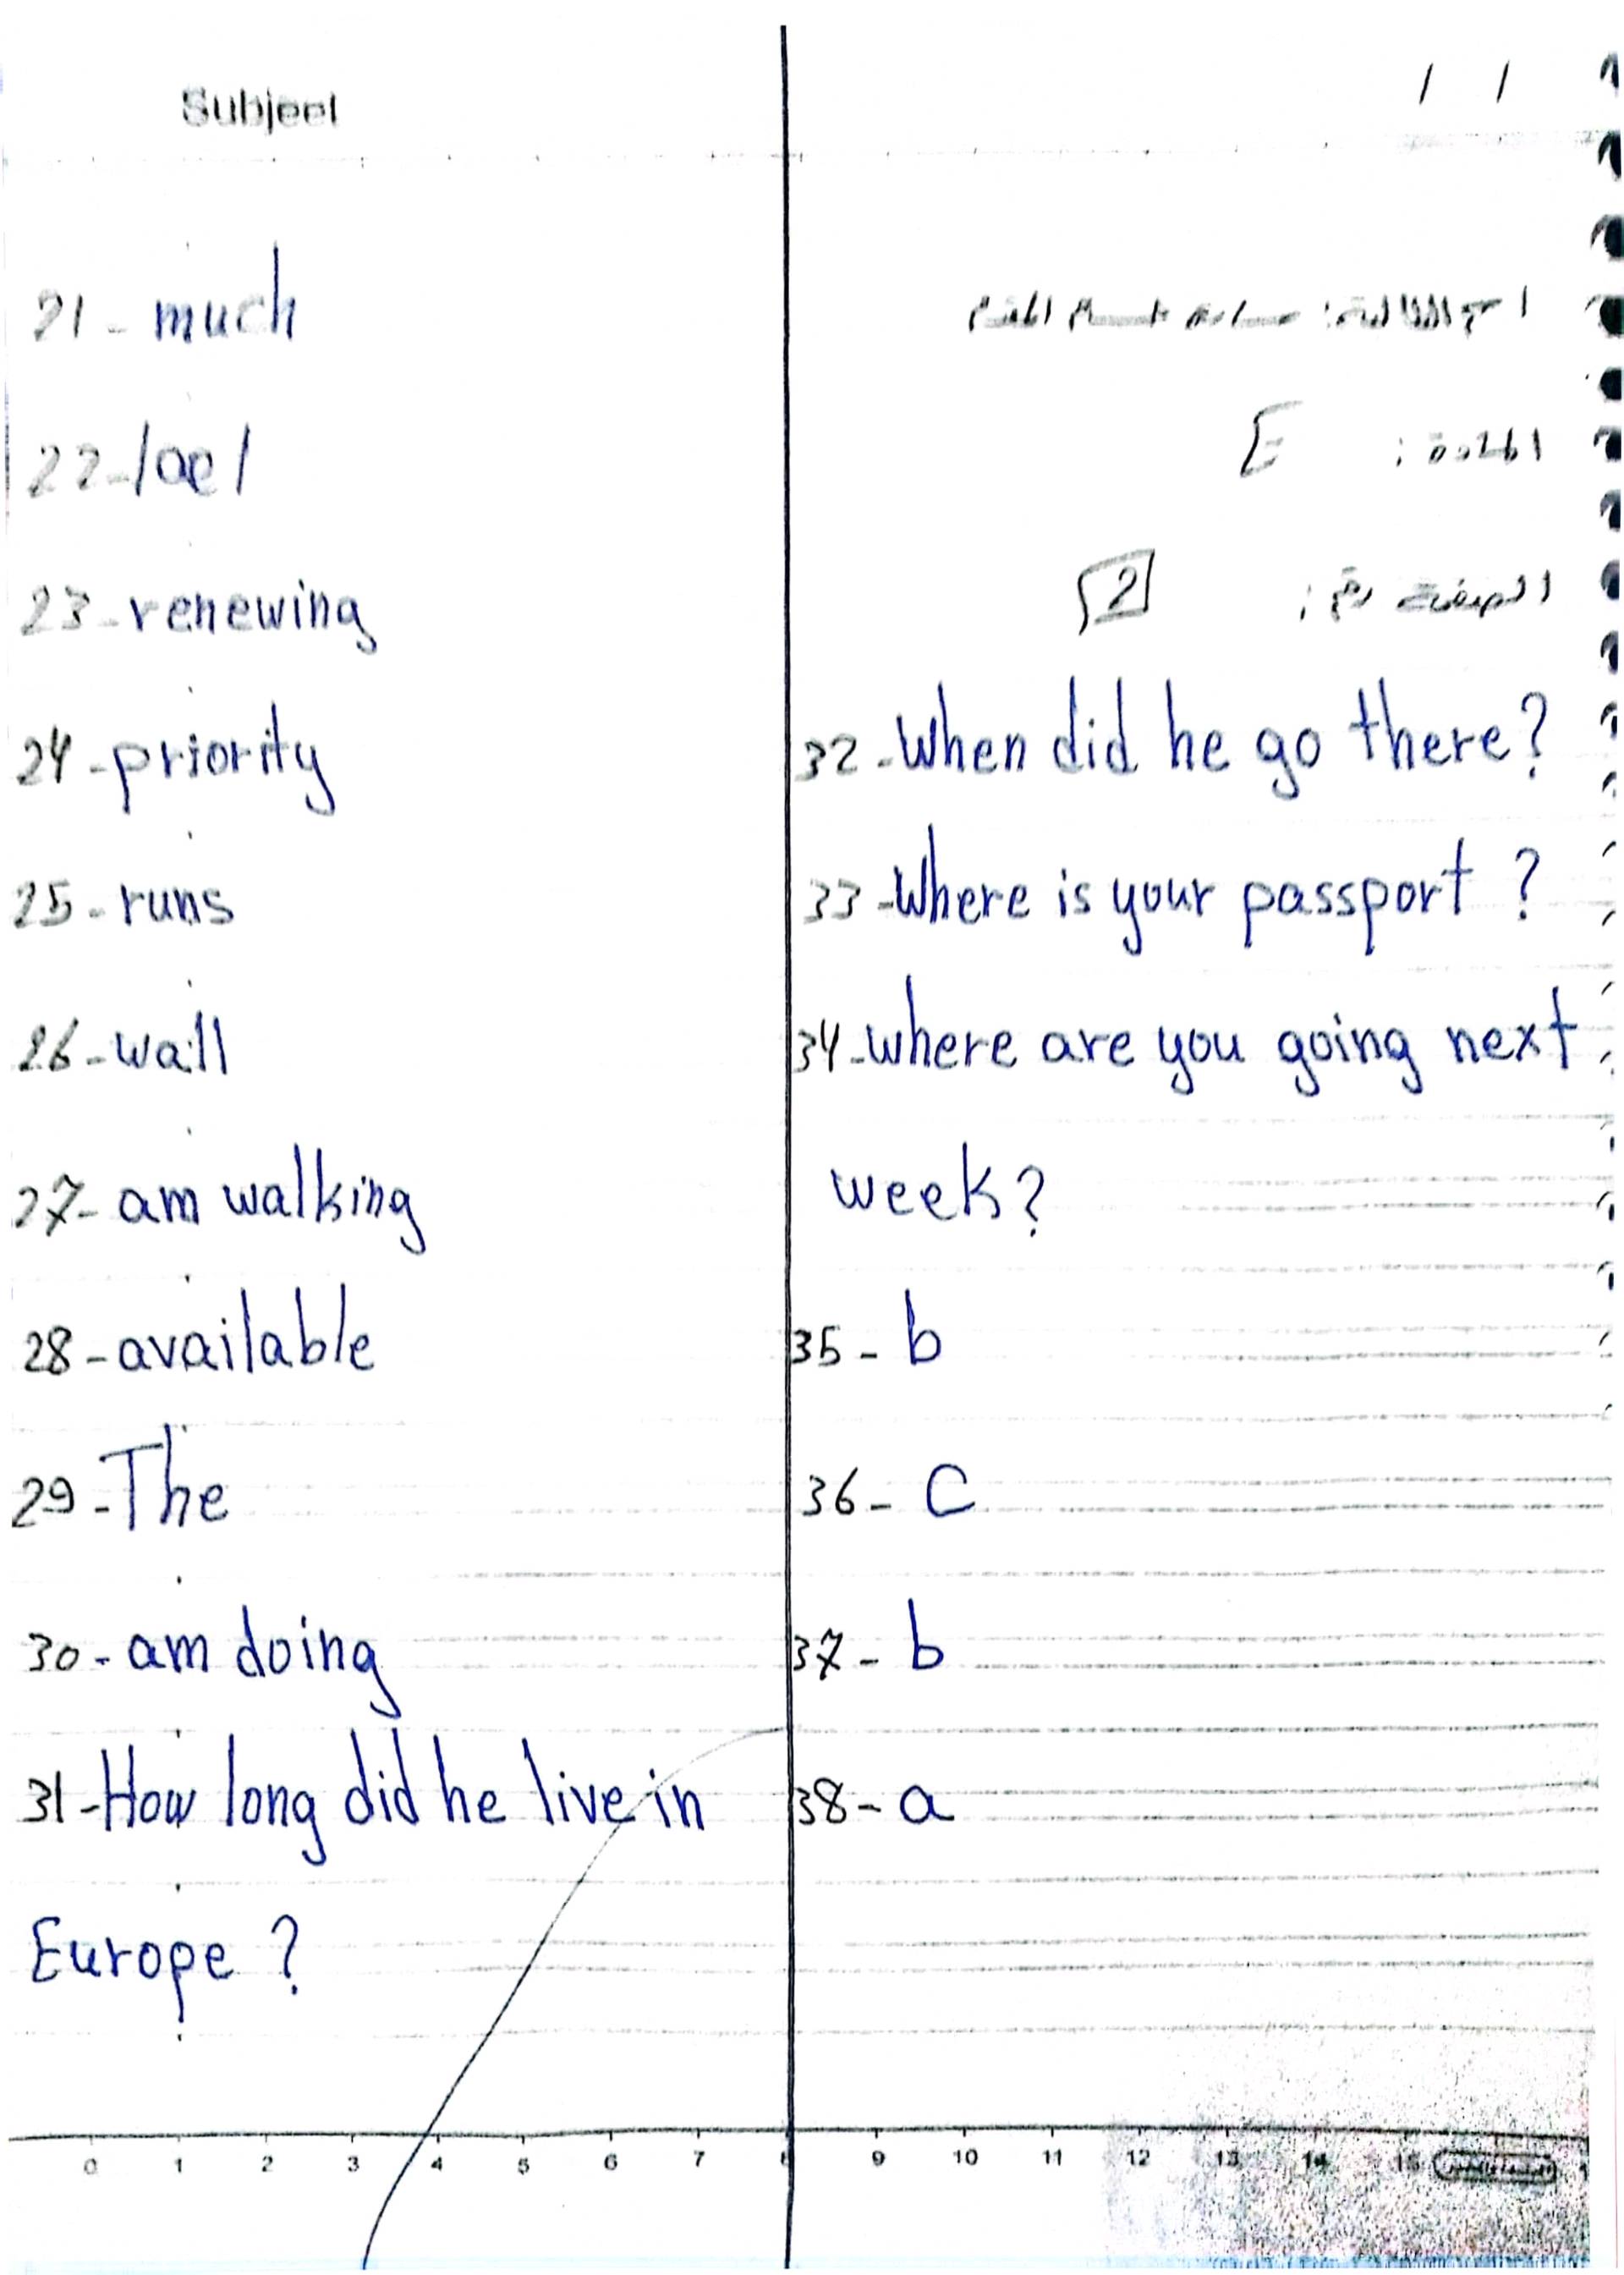 Subject
/ /
21- much
22- /ae/
23- renewing
24- priority
25- runs
26- wall
27- am walking
28- available
29- The
30- am doing
31- How long did he live in
Europe ?
المادة : E
الصفحة رقم : 2
32- When did he go there?
33- Where is your passport ?
34- where are you going next
week?
35- b
36- c
37- b
38- a
0 1 2 3 4 5 6 7 8 9 10 11 12 13 14 15